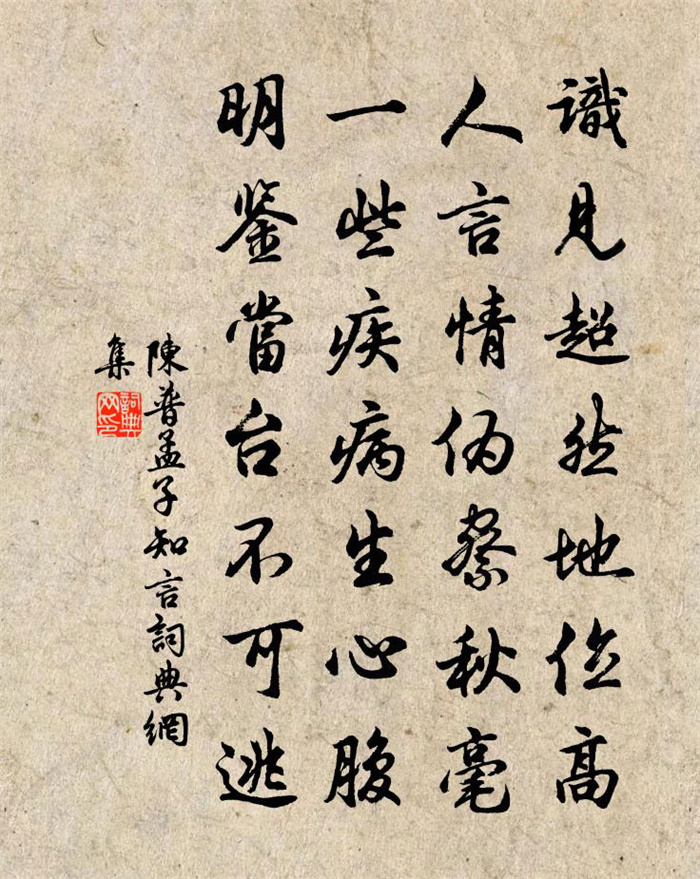 識見超然地位高
人言情伪察秋毫
一些疾病生心腹
明鉴當台不可逃
陳普孟子知言詞典網
集
詞典
网印